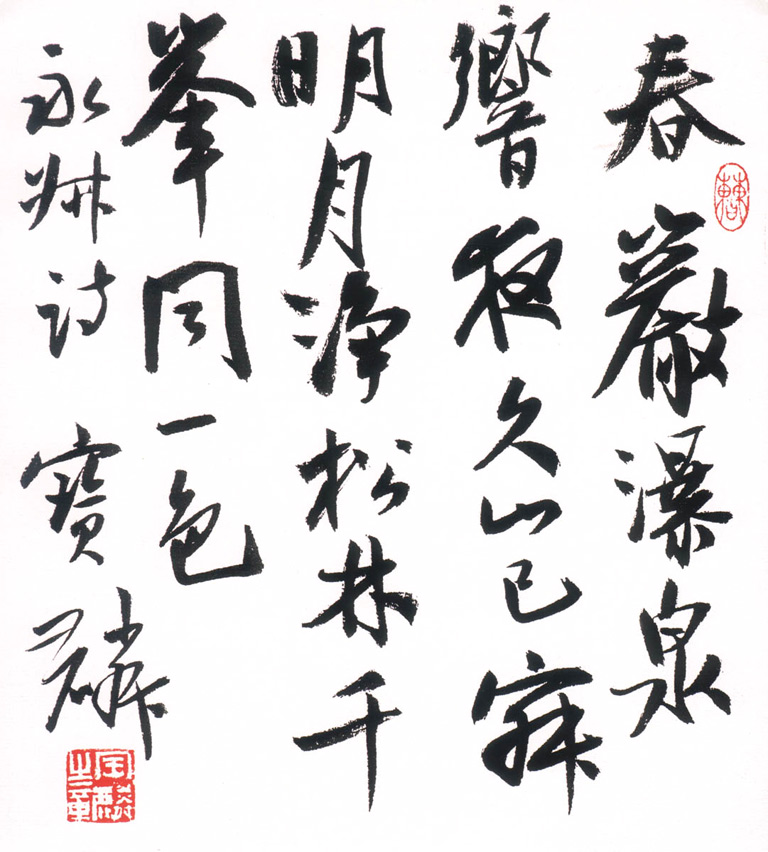 春巖瀑泉
響夜久山已寂
明月淨松林千
峯同一色
永叔詩 寶麟